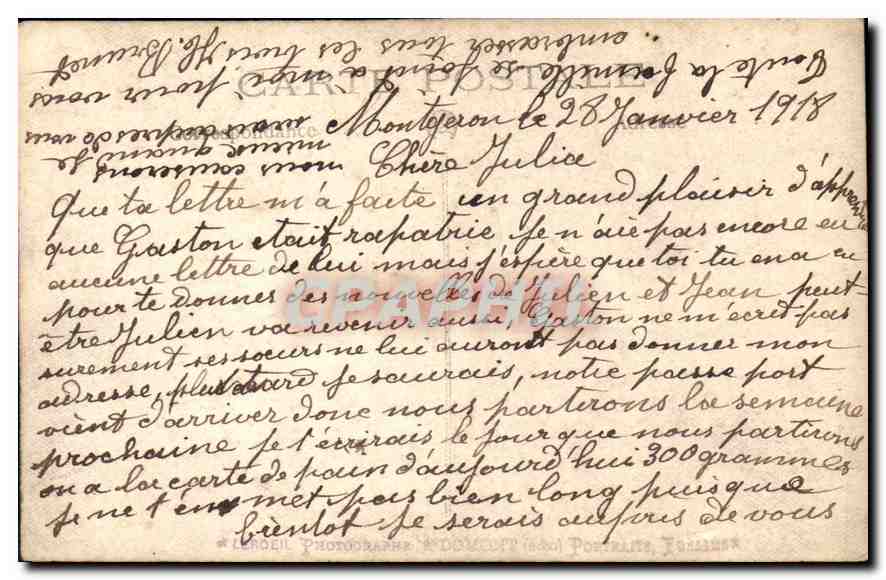 CARTE POSTALE
Correspondance
Adresse
Montgeron le 28 Janvier 1918
Chère Julia
Que ta lettre m'a faite un grand plaisir d'apprendre
que Gaston etait rapatrie je n'aie pas encore eu
aucune lettre de lui mais j'espère que toi tu en a eu
pour te donner des nouvelles de Julien et Jean peut-
être Julien va revenir aussi, Gaston ne m'écrit pas
surement ses sœurs ne lui auront pas donner mon
adresse, plus tard je saurais, notre passe port
vient d'arriver donc nous partirons la semaine
prochaine je t'écrirais le jour que nous partirons
on a la carte de pain d'aujourd'hui 300 grammes
je ne t'en met pas bien long puisque
bientot je serais aupres de vous
nous causerons
mieux quand je
serais aupres de vous
Toute la famille se joint a moi pour vous
embrasser tous les trois
Brunet
PHOTOGRAPHE DOMFONT (Orne) PORTRAITS,